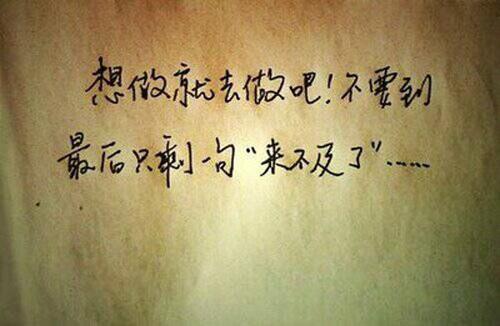 想做就去做吧!不要到
最后只剩一句"来不及了"……